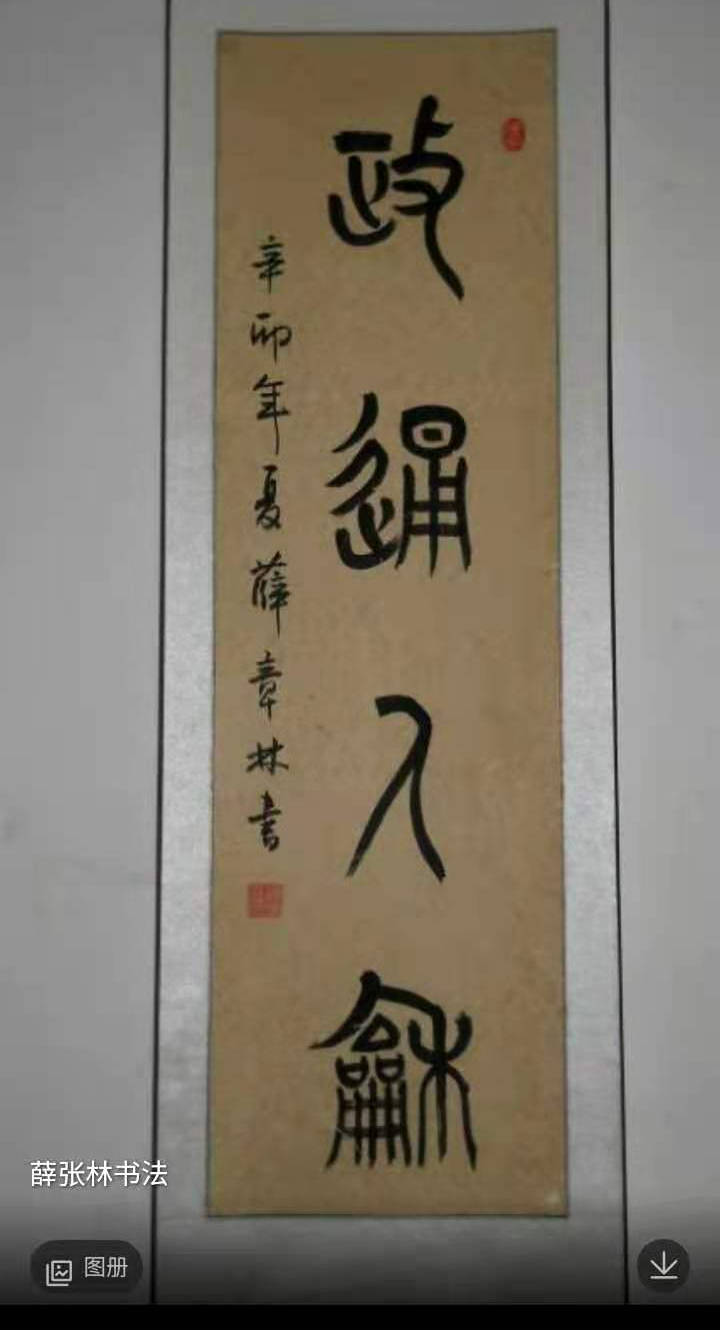 政通人龢
辛卯年夏薛章林书
薛张林书法
图册